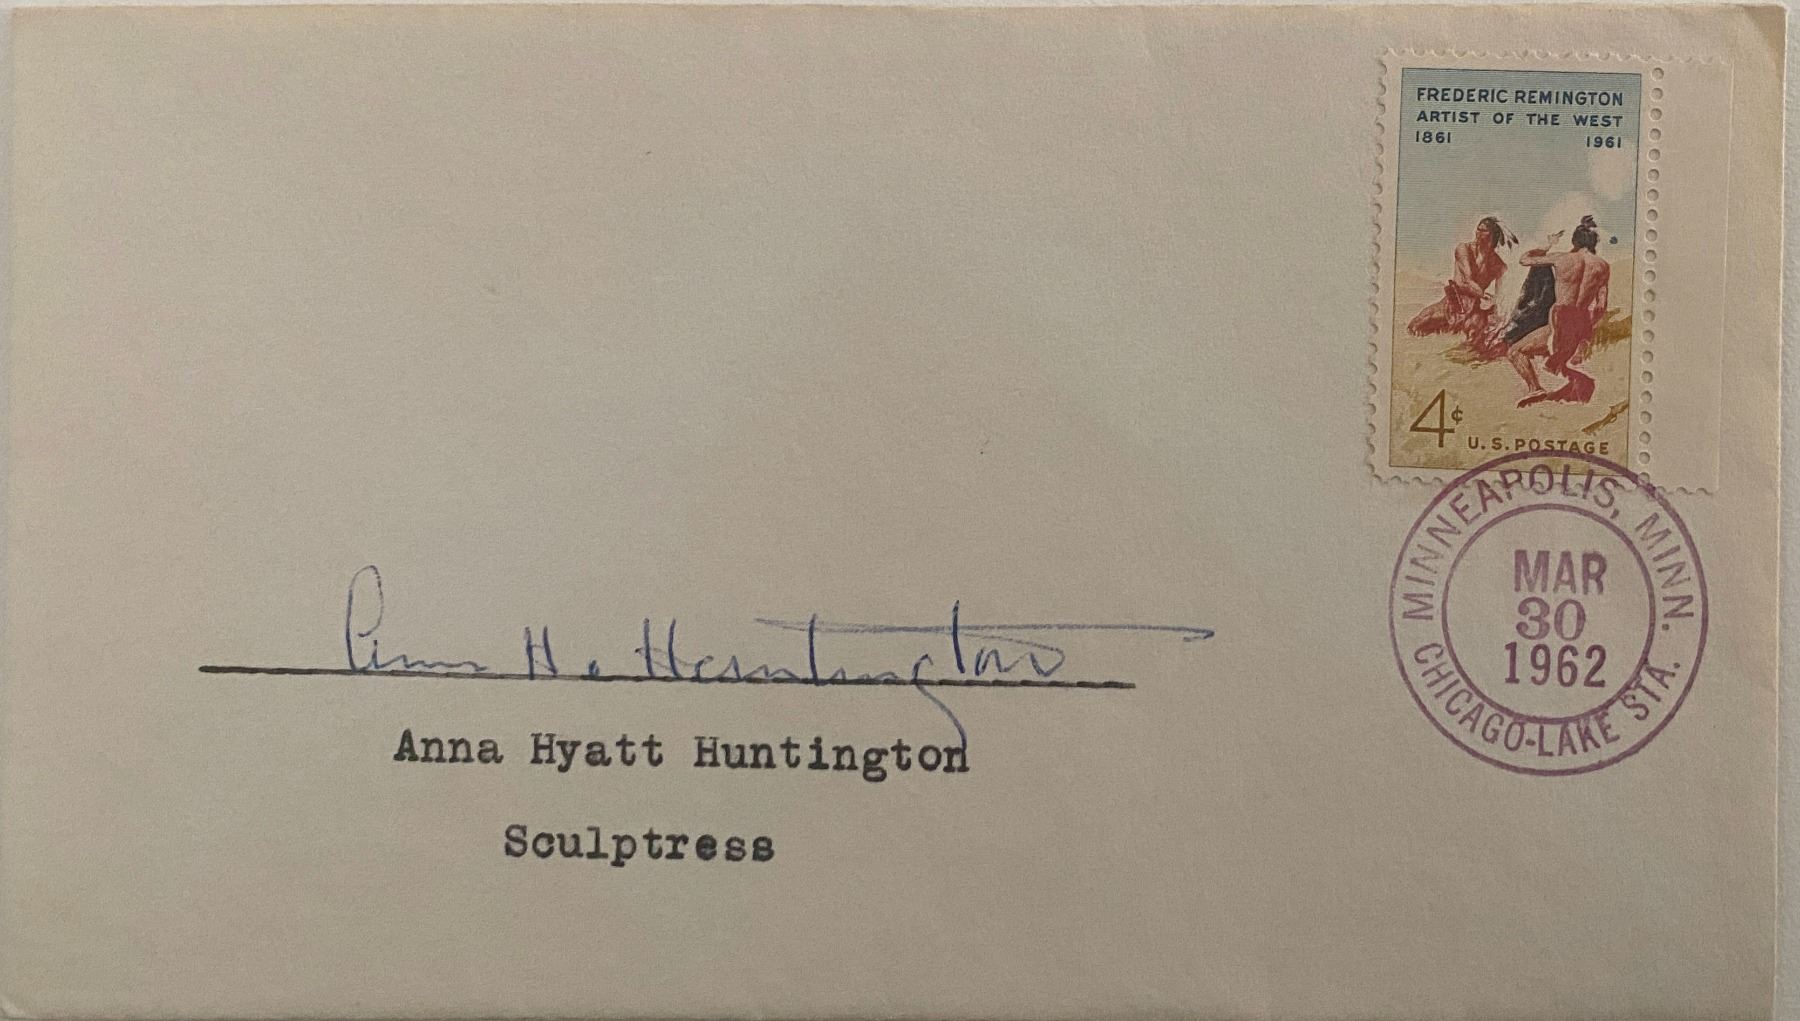 FREDERIC REMINGTON
ARTIST OF THE WEST
1861 1961
4¢ U.S. POSTAGE
MINNEAPOLIS, MINN.
MAR
30
1962
CHICAGO-LAKE STA.
Anna H. Huntington
Anna Hyatt Huntington
Sculptress